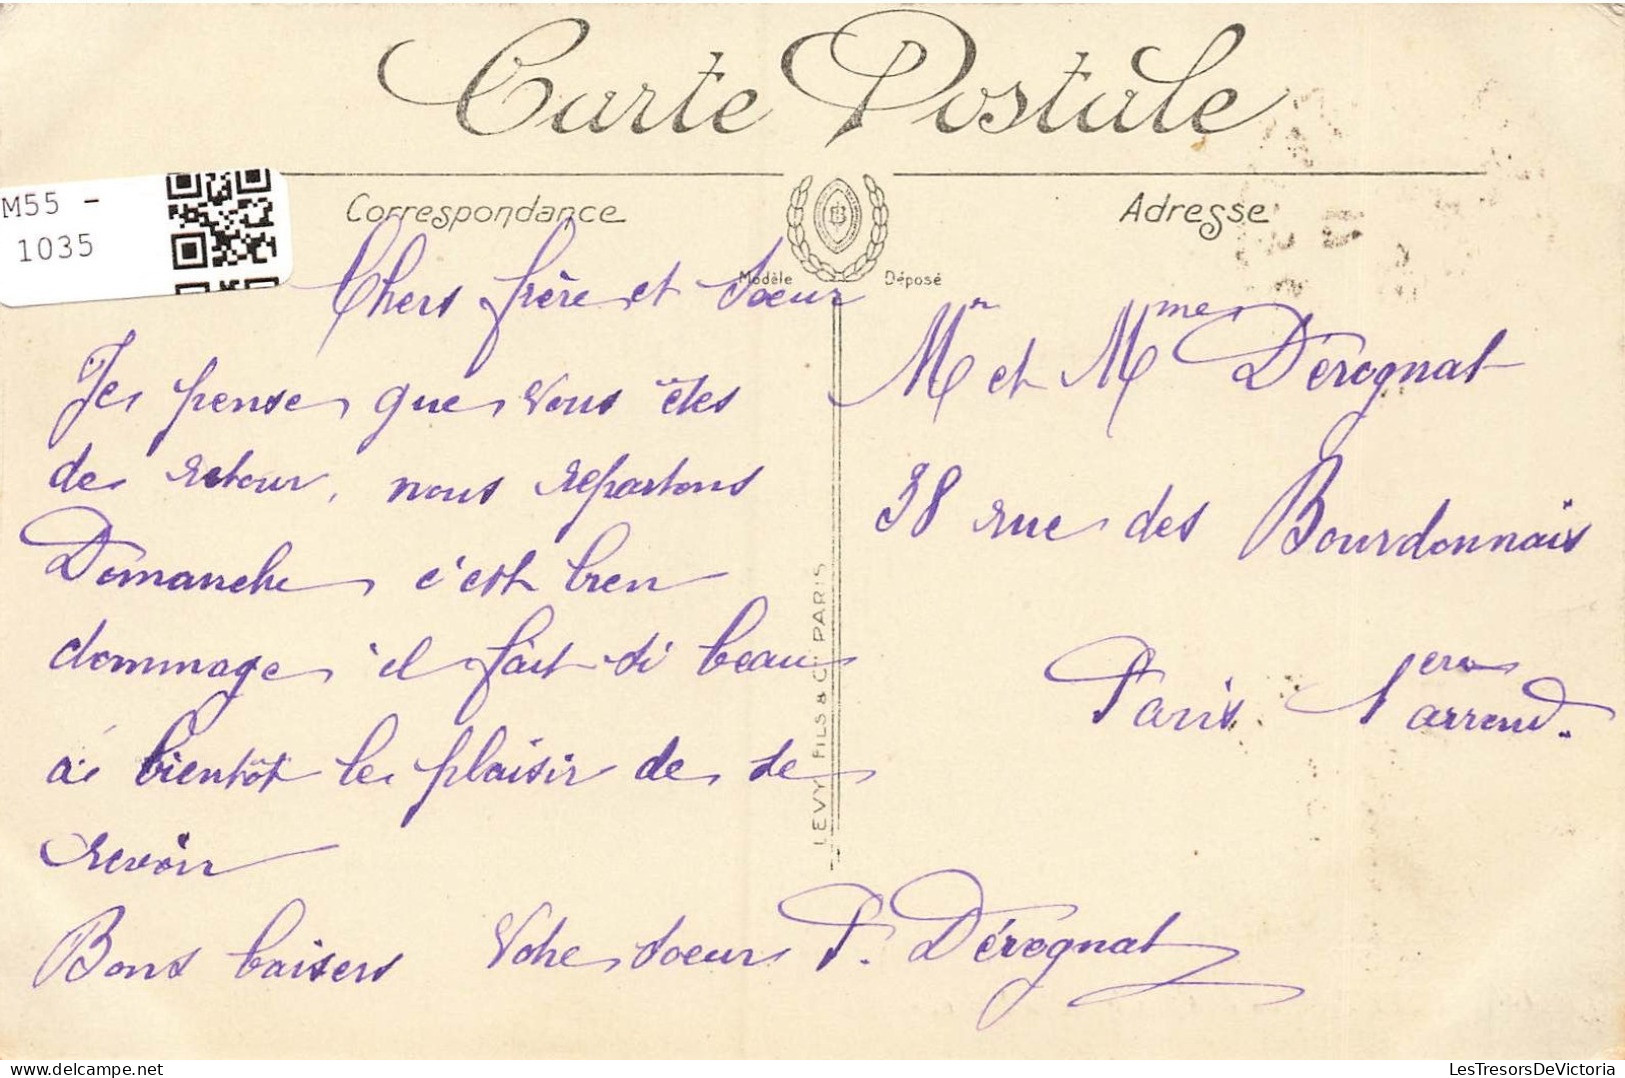 Carte Postale
M55 -
1035
Correspondance
Adresse
Modèle Déposé
Chers frère et Soeur
Je pense que vous êtes
de retour, nous repartons
Dimanche c'est bien
dommage il fait si beau
à bientôt le plaisir de se
revoir
Bons baisers Votre soeur P. Dérognat
LEVY FILS & Cie PARIS
Mr et Mme Dérognat
38 rue des Bourdonnais
Paris 1er arrond.
LesTresorsDeVictoria